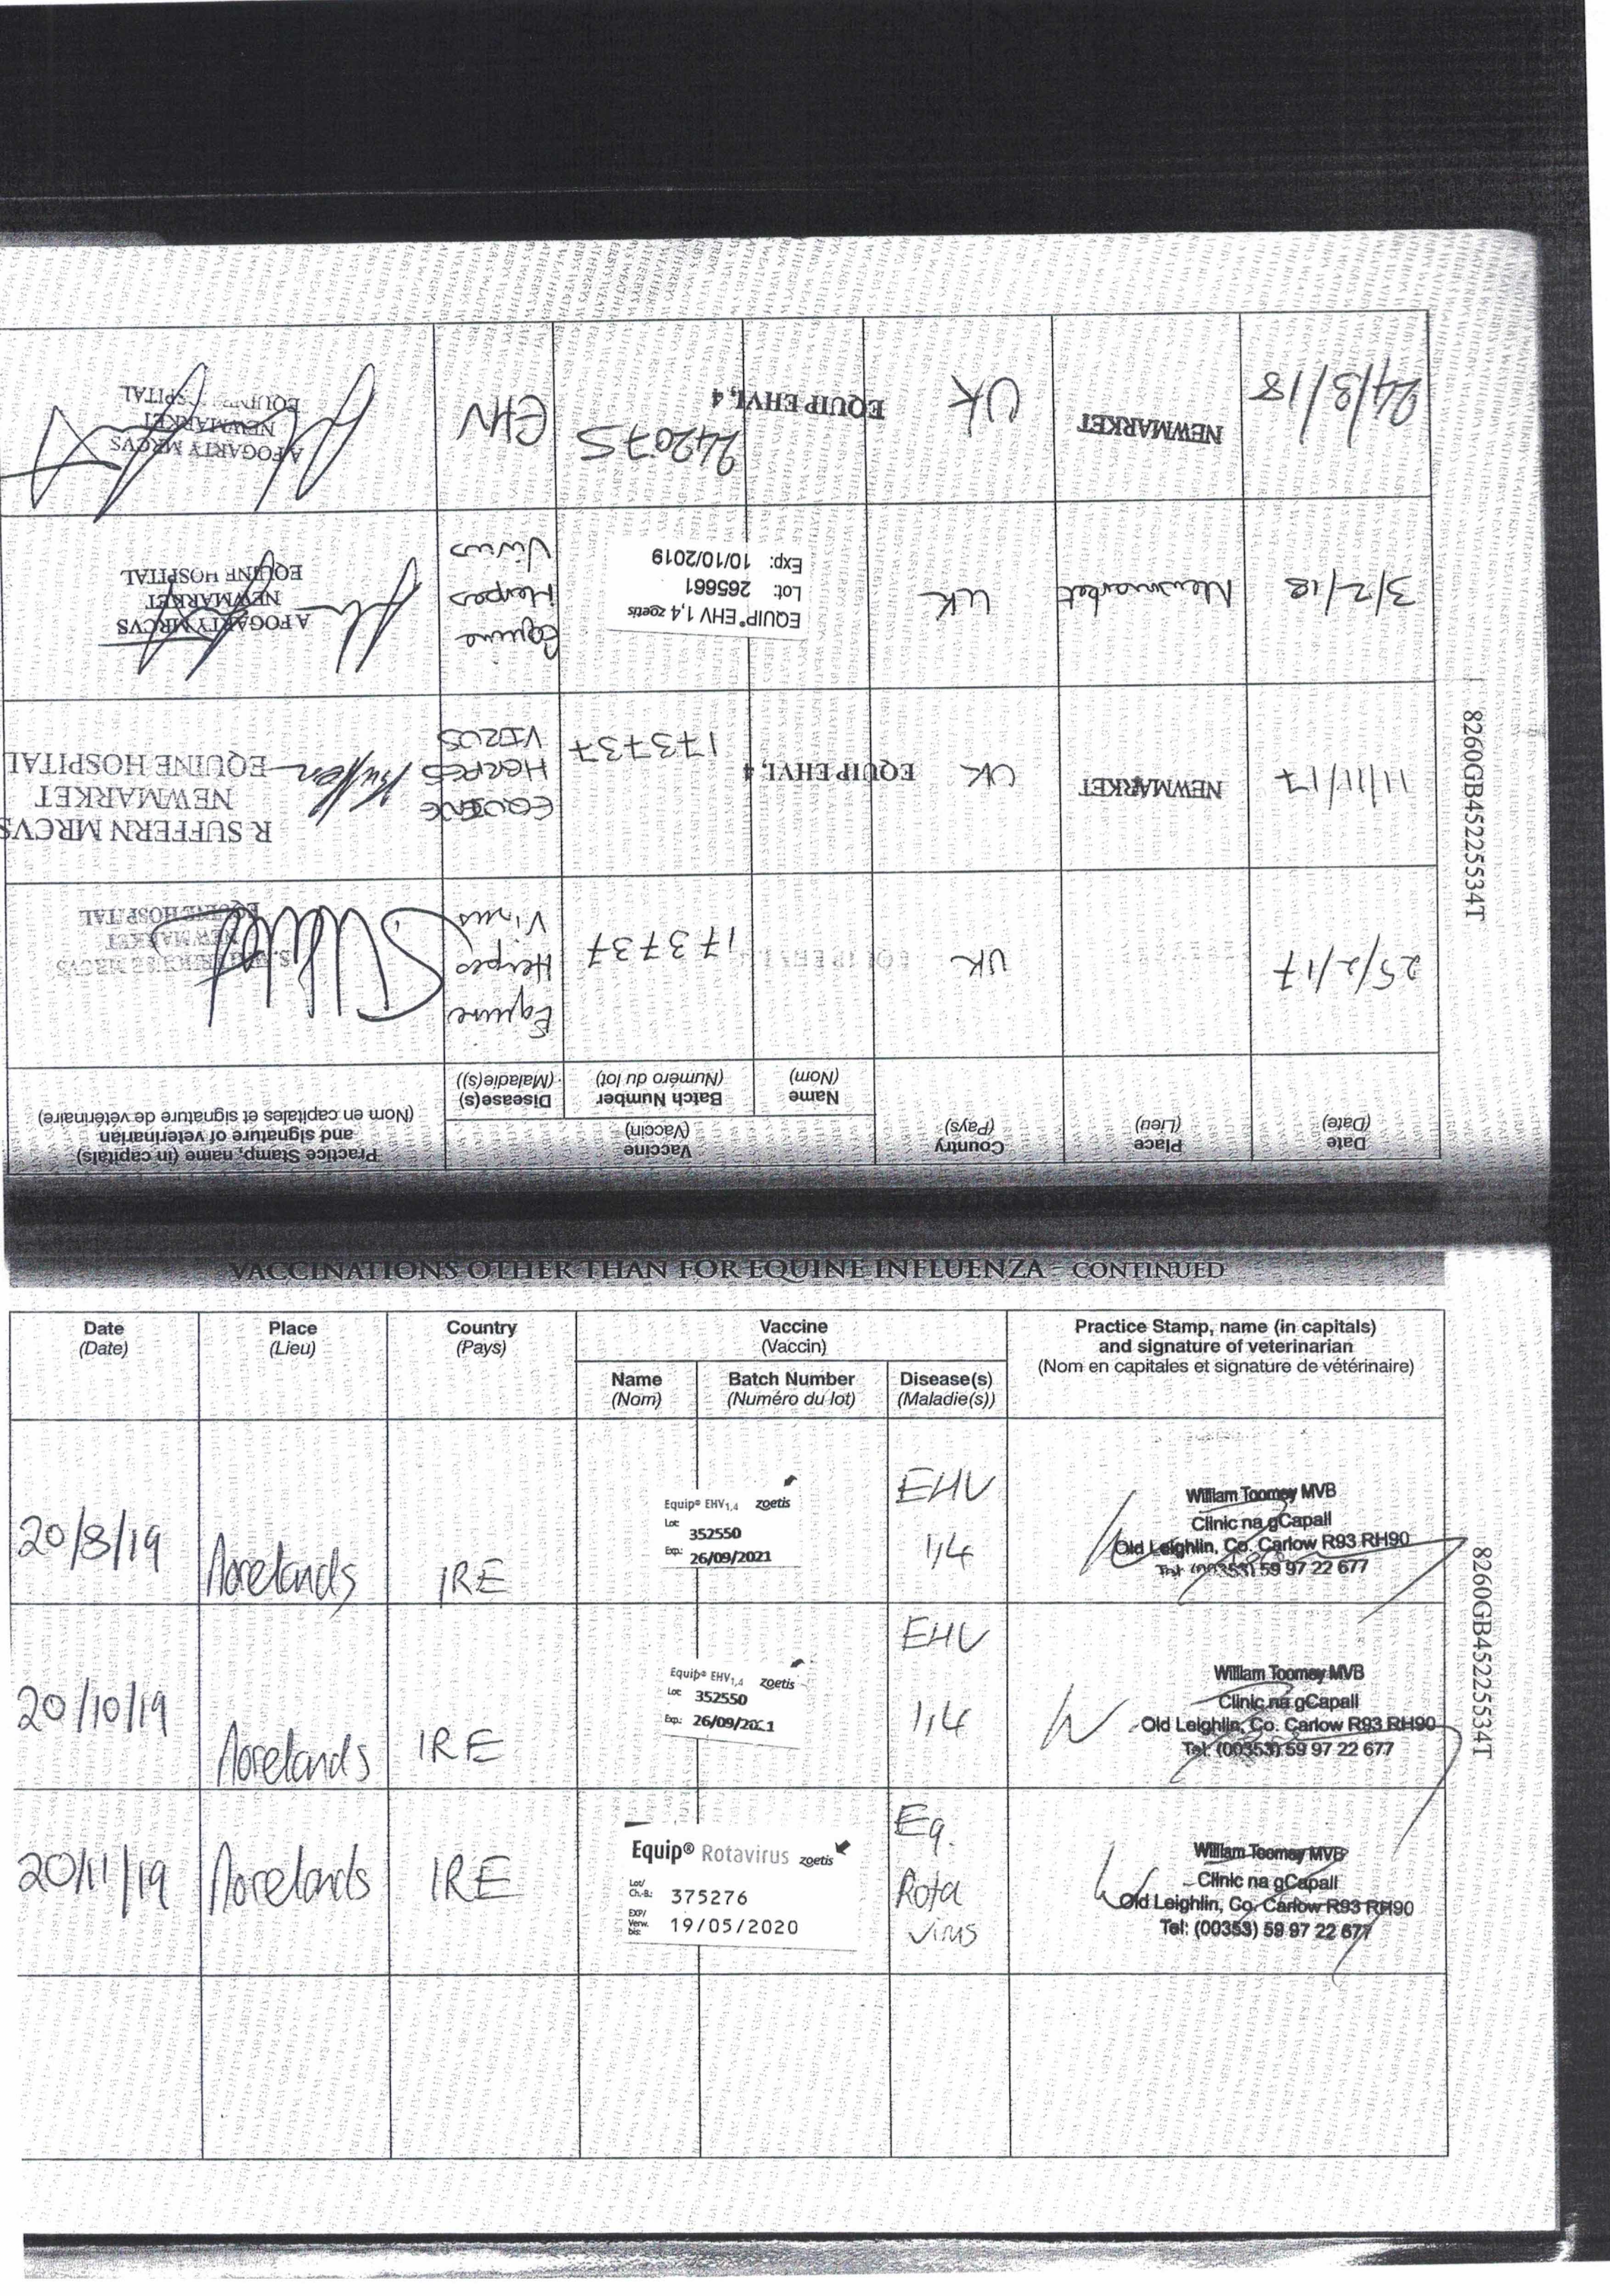 Date
(Date)
Place
(Lieu)
Country
(Pays)
Vaccine
(Vaccin)
Name
(Nom)
Batch Number
(Numéro du lot)
Disease(s)
(Maladie(s))
Practice Stamp, name (in capitals)
and signature of veterinarian
(Nom en capitales et signature de vétérinaire)
25/2/17
UK
EQUIP EHV1,4
173737
Equine
Herpes
Virus
MRCVS
NEWMARKET
EQUINE HOSPITAL
11/11/17
NEWMARKET
UK
EQUIP EHV1, 4
173737
EQUINE
HERPES
VIRUS
R SUFFERN MRCVS
NEWMARKET
EQUINE HOSPITAL
3/2/18
Newmarket
UK
EQUIP® EHV 1,4 zoetis
Lot: 265661
Exp: 10/10/2019
Equine
Herpes
Virus
A FOGARTY MRCVS
NEWMARKET
EQUINE HOSPITAL
24/3/18
NEWMARKET
UK
EQUIP EHV1, 4
242075
EHV
A FOGARTY MRCVS
NEWMARKET
EQUINE HOSPITAL
8260GB45225534T
VACCINATIONS OTHER THAN FOR EQUINE INFLUENZA - CONTINUED
Date
(Date)
Place
(Lieu)
Country
(Pays)
Vaccine
(Vaccin)
Name
(Nom)
Batch Number
(Numéro du lot)
Disease(s)
(Maladie(s))
Practice Stamp, name (in capitals)
and signature of veterinarian
(Nom en capitales et signature de vétérinaire)
20/8/19
Norelands
IRE
Equip® EHV1,4 zoetis
Lot: 352550
Exp.: 26/09/2021
EHV
1,4
William Toomey MVB
Clinic na gCapall
Old Leighlin, Co. Carlow R93 RH90
Tel: (00353) 59 97 22 677
20/10/19
Norelands
IRE
Equip® EHV1,4 zoetis
Lot: 352550
Exp.: 26/09/2021
EHV
1,4
William Toomey MVB
Clinic na gCapall
Old Leighlin, Co. Carlow R93 RH90
Tel: (00353) 59 97 22 677
20/11/19
Norelands
IRE
Equip® Rotavirus zoetis
Lot/
Ch.-B.: 375276
EXP/
Verw.
bis: 19/05/2020
Eq.
Rota
Virus
William Toomey MVB
Clinic na gCapall
Old Leighlin, Co. Carlow R93 RH90
Tel: (00353) 59 97 22 677
8260GB45225534T